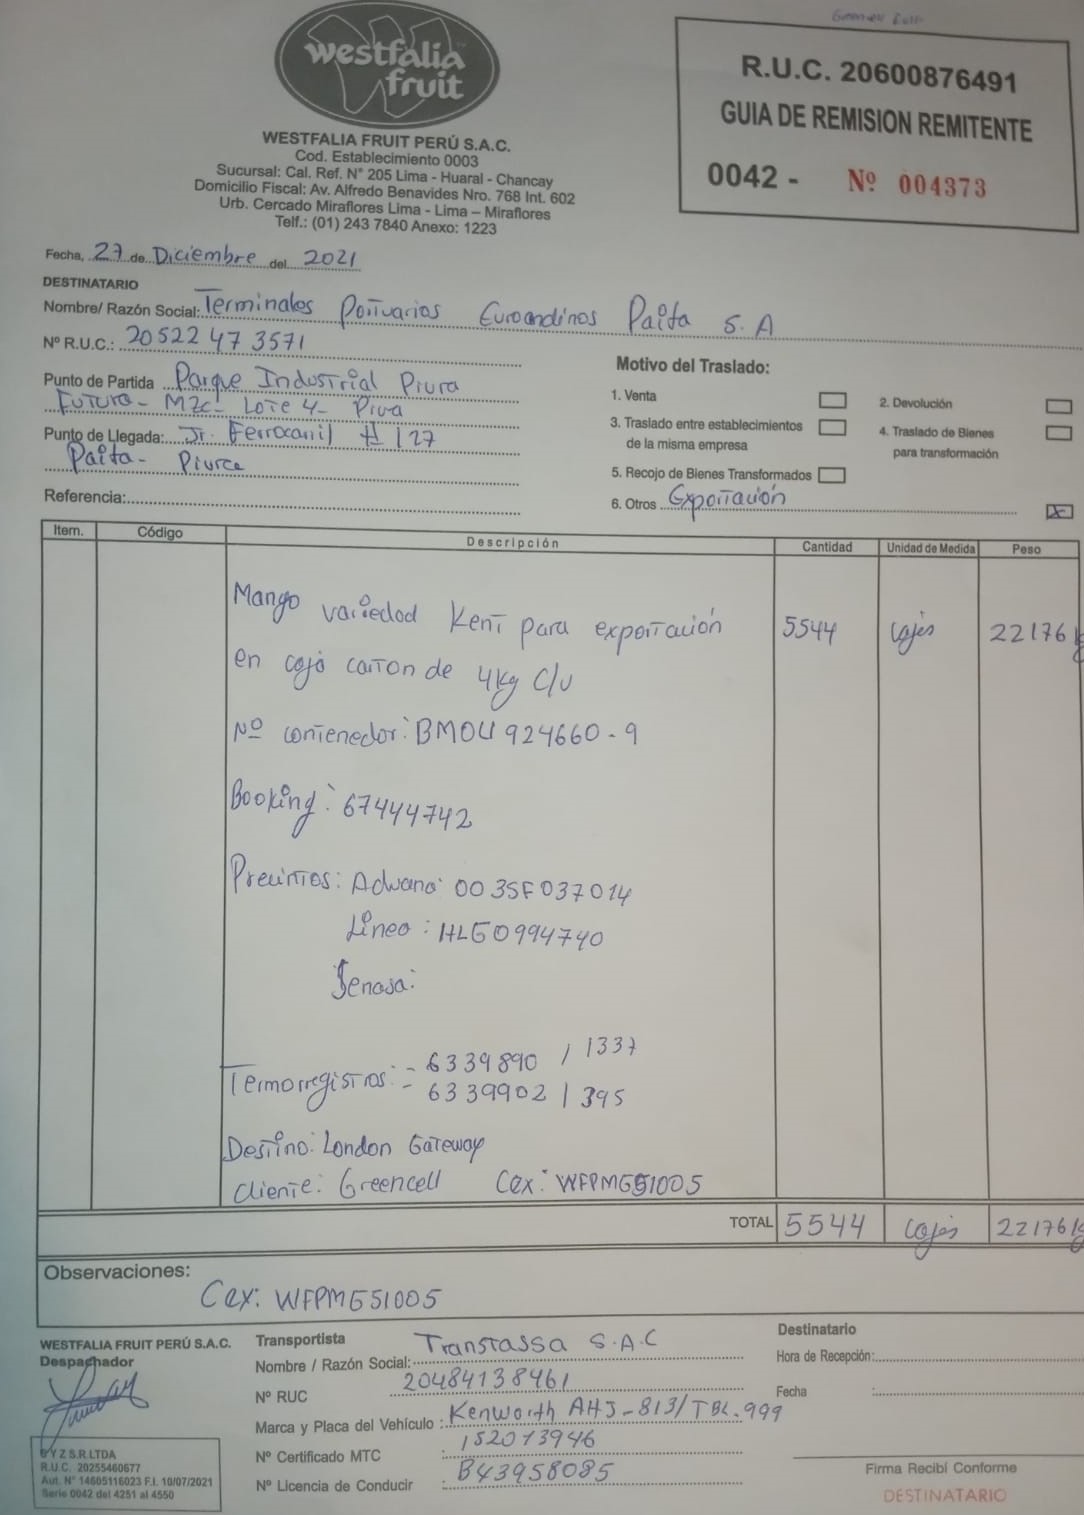 westfalia
fruit
WESTFALIA FRUIT PERÚ S.A.C.
Cod. Establecimiento 0003
Sucursal: Cal. Ref. N° 205 Lima - Huaral - Chancay
Domicilio Fiscal: Av. Alfredo Benavides Nro. 768 Int. 602
Urb. Cercado Miraflores Lima - Lima – Miraflores
Telf.: (01) 243 7840 Anexo: 1223
R.U.C. 20600876491
GUIA DE REMISION REMITENTE
0042 - Nº 004373
Fecha, 27 de Diciembre del 2021
DESTINATARIO
Nombre/ Razón Social: Terminales Portuarios Euroandinos Paita S.A
Nº R.U.C.: 20522473571
Punto de Partida Parque Industrial Piura
Futura - Mzc - Lote 4 - Piura
Punto de Llegada: Jr. Ferrocarril # 127
Paita - Piura
Referencia:
Motivo del Traslado:
1. Venta
2. Devolución
3. Traslado entre establecimientos
de la misma empresa
4. Traslado de Bienes
para transformación
5. Recojo de Bienes Transformados
6. Otros Exportación X
Item. Código Descripción Cantidad Unidad de Medida Peso
Mango variedad Kent para exportación 5544 cajas 22176 kg
en caja carton de 4kg c/u
Nº contenedor: BMOU 924660-9
Booking: 67444742
Precintos: Aduana: 003SF037014
Linea: HLG0994740
Senasa:
Termorregistros: - 6339890 / 1337
- 6339902 / 395
Destino: London Gateway
Cliente: Greencell Cex: WFPMG51005
TOTAL 5544 cajas 22176 kg
Observaciones:
Cex: WFPMG51005
WESTFALIA FRUIT PERÚ S.A.C.
Despachador
Transportista
Nombre / Razón Social: Transtassa S.A.C
Nº RUC 20484138461
Marca y Placa del Vehículo: Kenworth AHJ-813/TBL-999
Nº Certificado MTC : 152013946
Nº Licencia de Conducir : B43958085
Destinatario
Hora de Recepción:
Fecha :
Firma Recibí Conforme
DESTINATARIO
B Y Z S.R.LTDA
R.U.C. 20255460677
Aut. N° 14605116023 F.I. 10/07/2021
Serie 0042 del 4251 al 4550